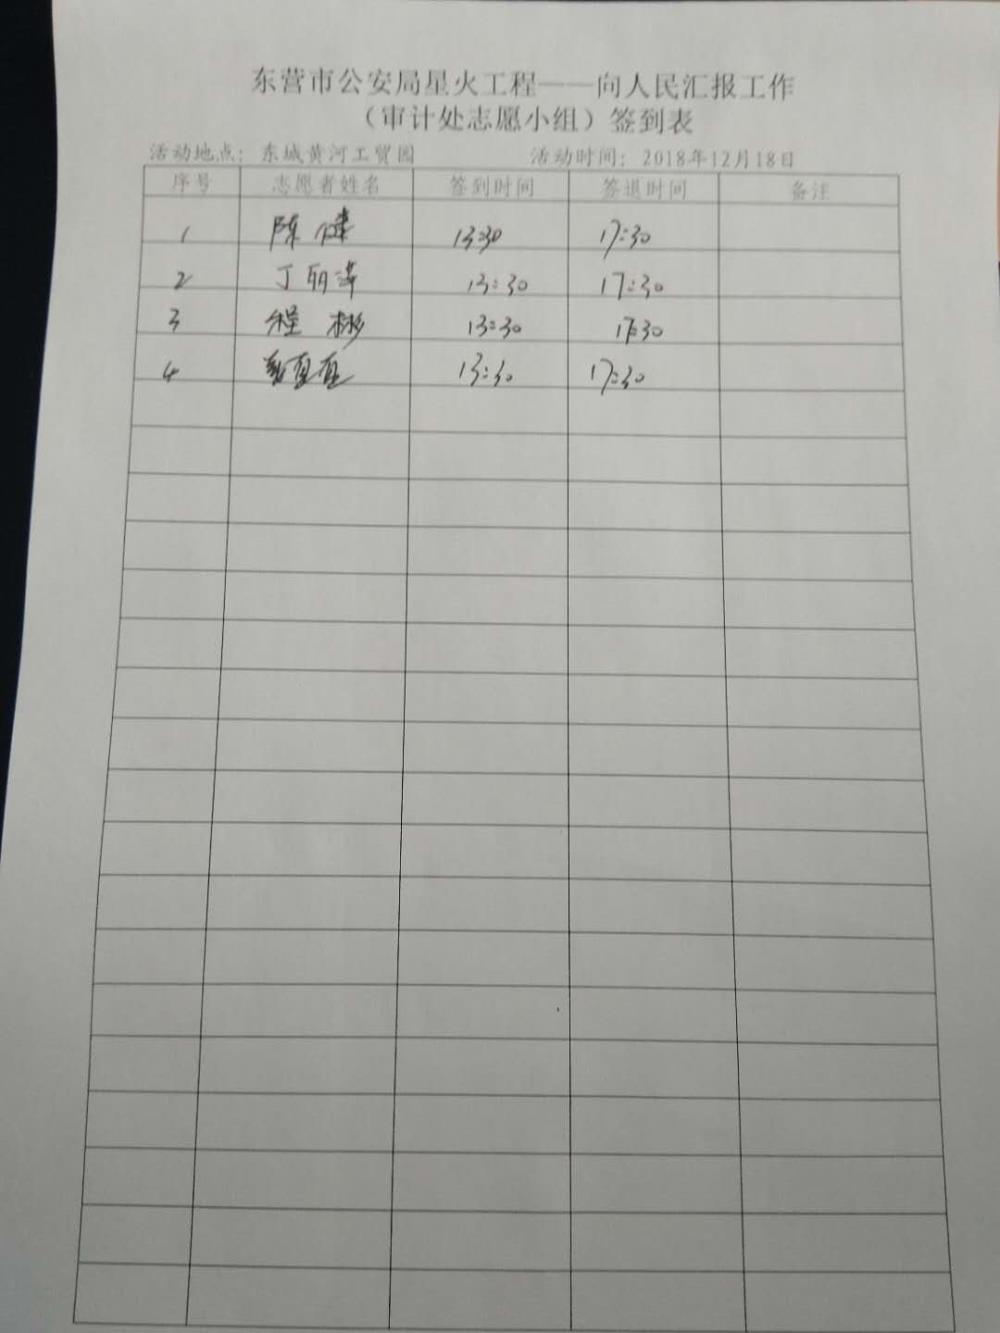 东营市公安局星火工程——向人民汇报工作
（审计处志愿小组）签到表
活动地点：东城黄河工贸园 活动时间：2018年12月18日
序号 志愿者姓名 签到时间 签退时间 备注
1 陈健 13:30 17:30
2 丁 13:30 17:30
3 程彬 13:30 17:30
4 13:30 17:30